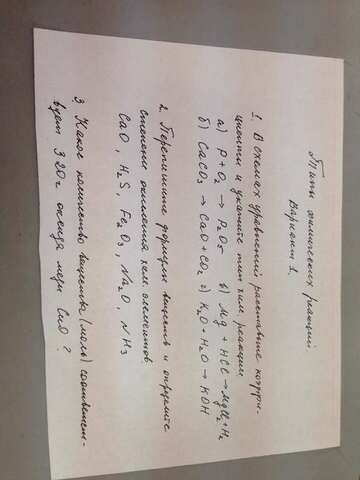 Типы химических реакций.
Вариант 1.
1. В схемах уравнений расставьте коэффи-
циенты и укажите тип хим. реакции
а) P + O₂ → P₂O₅ в) Mg + HCl → MgCl₂ + H₂
б) CaCO₃ → CaO + CO₂ г) K₂O + H₂O → KOH
2. Перепишите формулы веществ и определите
степени окисления хим. элементов
CaO, H₂S, Fe₂O₃, Na₂O, NH₃
3. Какое количество вещества (моль) соответст-
вует 320г оксида меди CuO ?